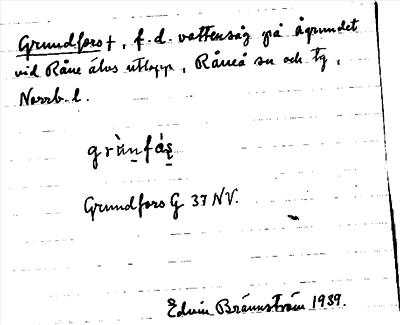 Grundfors †, f.d. vattensåg på ågrundet
vid Råne älvs utlopp, Råneå sn och tg,
Norrb. l.
grùn̠fás̠
Grundfors G 37 NV.
Edvin Brännström 1939.